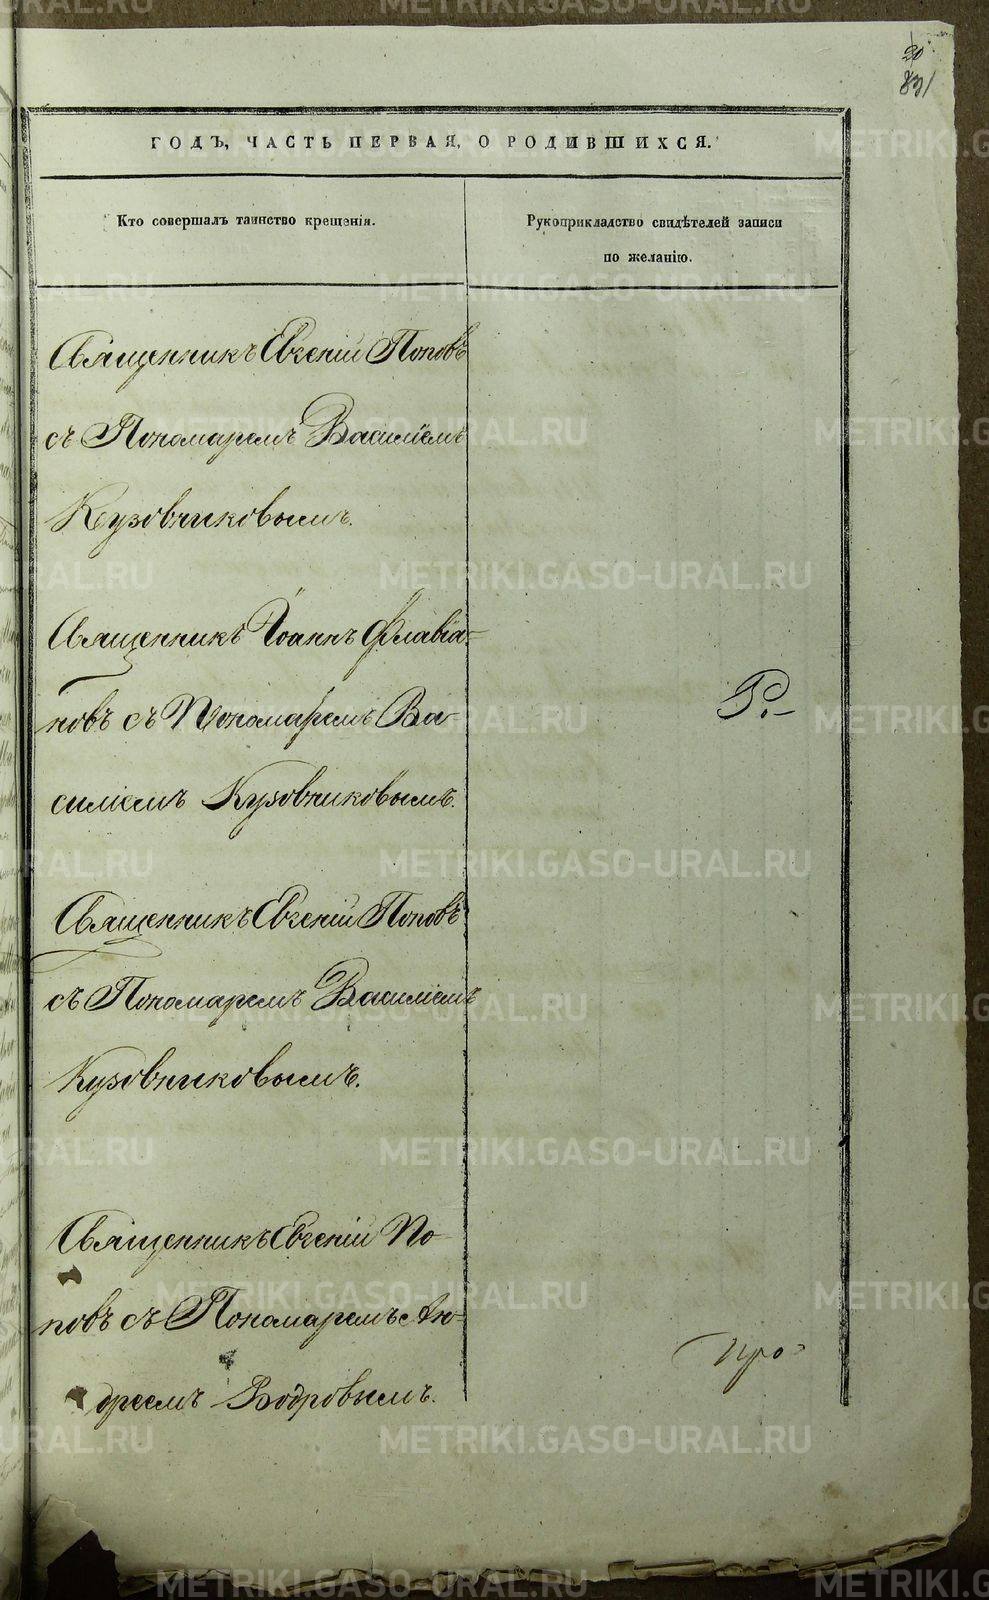 20
831
ГОДЪ, ЧАСТЬ ПЕРВАЯ, О РОДИВШИХСЯ.
Кто совершалъ таинство крещенія.
Рукоприкладство свидѣтелей записи
по желанію.
Священникъ Евгеній Поповъ
съ Пономаремъ Василіемъ
Кузовниковымъ.
Священникъ Іоаннъ Флавіа-
новъ съ Пономаремъ Ва-
силіемъ Кузовниковымъ.
Р.
Священникъ Евгеній Поповъ
съ Пономаремъ Василіемъ
Кузовниковымъ.
Священникъ Евгеній По-
повъ съ Пономаремъ Ан-
дреемъ Бодровымъ.
про
METRIKI.GASO-URAL.RU